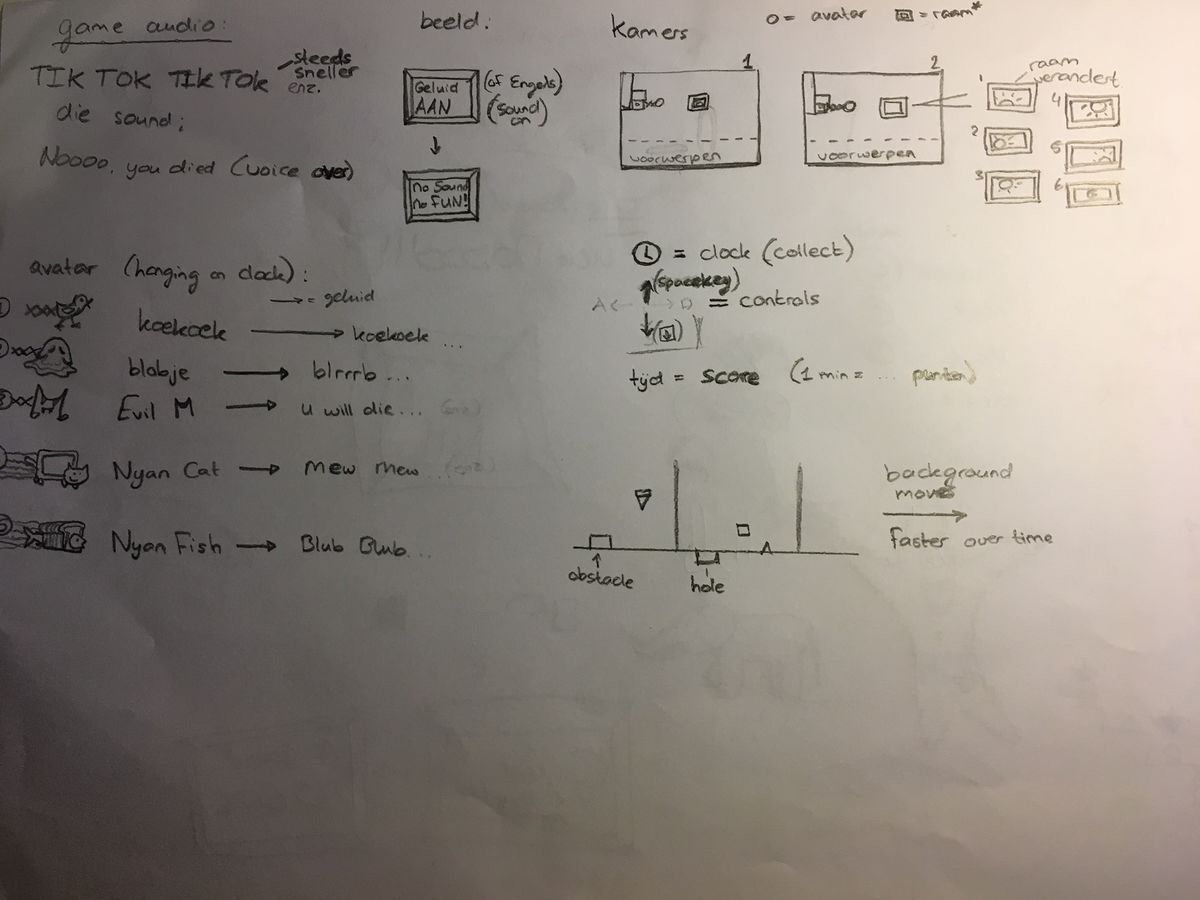 game audio:
TIK TOK TIK TOK
steeds
sneller
enz.
die sound:
Noooo, you died (voice over)
beeld:
Geluid
AAN
(of Engels)
(sound
on)
no Sound
no FUN!
Kamers
o = avatar
= raam*
1
voorwerpen
2
voorwerpen
raam
verandert
1
2
3
4
5
6
avatar (hanging on clock):
→ = geluid
1
koekoek → koekoek ...
2
blobje → blrrrb ...
3
Evil M → u will die...
Nyan Cat → mew mew ...
Nyan Fish → Blub Blub...
= clock (collect)
(spacekey)
A ← → D = controls
tijd = score (1 min = ... punten)
obstacle
hole
background
moves
faster over time